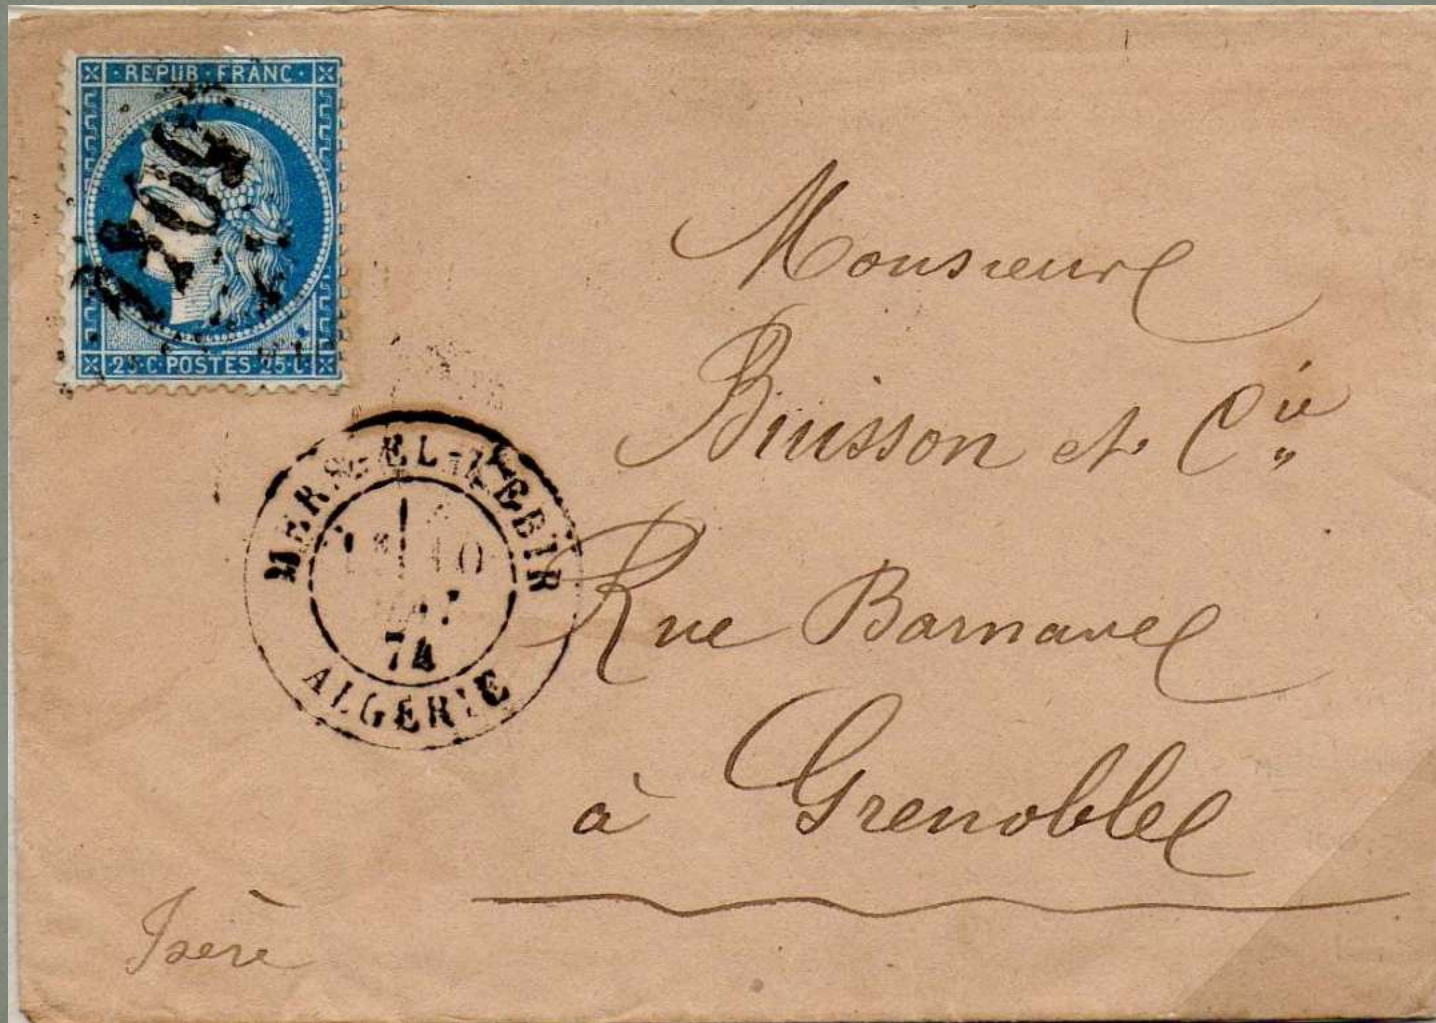 REPUB·FRANC
25·C·POSTES·25·C
MERS-EL-KEBIR
10
74
ALGERIE
Monsieur
Buisson et Cie
Rue Barnave
à Grenoble
Isère